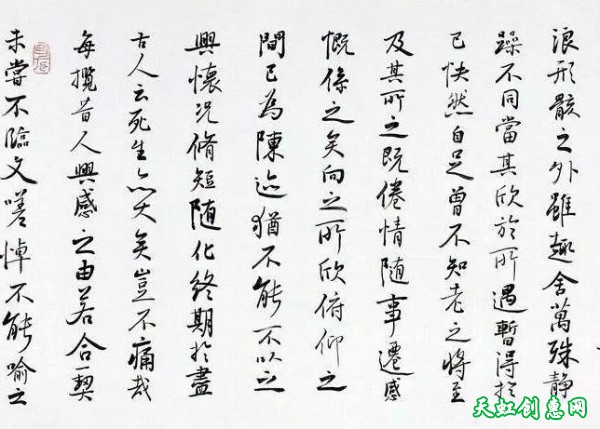 浪形骸之外雖趣舍萬殊静
躁不同當其欣於所遇暫得於
己快然自足曾不知老之將至
及其所之既倦情随事遷感
慨係之矣向之所欣俯仰之
間已為陳迹猶不能不以之
興懷况脩短随化終期於盡
古人云死生亦大矣豈不痛哉
每攬昔人興感之由若合一契
未嘗不臨文嗟悼不能喻之
天虹创惠网